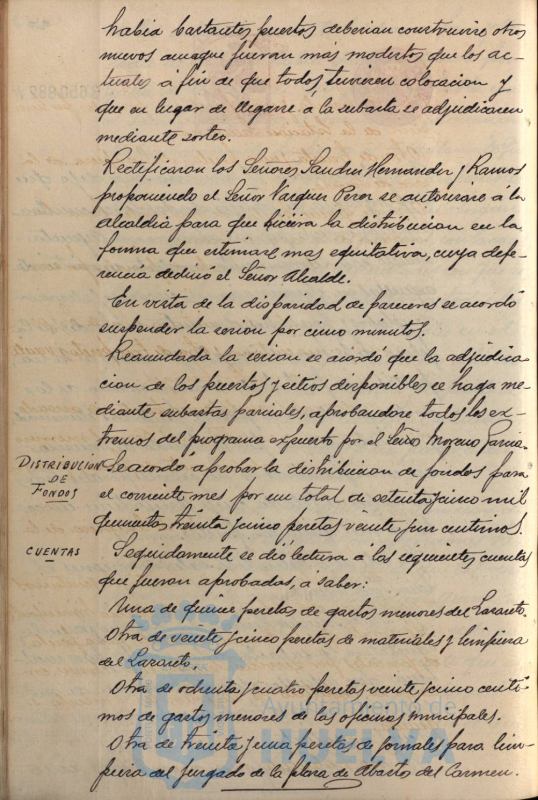 habia bastantes puestos deberian construirse otros
nuevos aunque fueran más modestos que los ac-
tuales á fin de que todos tuviesen colocacion y
que en lugar de llegarse á la subasta se adjudicasen
mediante sorteo.
Rectificaron los Señores Sanchez Hernandez y Ramos
proponiendo el Señor Vazquez Perez se autorizase á la
alcaldia para que hiciera la distribucion en la
forma que estimase mas equitativa, cuya defe-
rencia declinó el Señor Alcalde.
En vista de la disparidad de pareceres se acordó
suspender la sesion por cinco minutos.
Reanudada la sesion se acordó que la adjudica
cion de los puestos y sitios disponibles se haga me-
diante subastas parciales, aprobandose todos los ex-
tremos del programa expuesto por el Señor Moreno Garcia.
DISTRIBUCION
DE
FONDOS
Se acordó aprobar la distribucion de fondos para
el corriente mes por un total de setenta y cinco mil
quinientas treinta y cinco pesetas veinte y un centimos.
CUENTAS
Seguidamente se dió lectura á las siguientes cuentas
que fueran aprobadas, a saber:
Una de quince pesetas de gastos menores del Lazareto.
Otra de veinte y cinco pesetas de materiales y limpieza
del Lazareto.
Otra de ochenta y cuatro pesetas veinte y cinco centi-
mos de gastos menores de las oficinas municipales.
Otra de treinta y una pesetas de jornales para lim-
pieza del juzgado de la plaza de Abastos del Carmen.
Ayuntamiento de
HUELVA